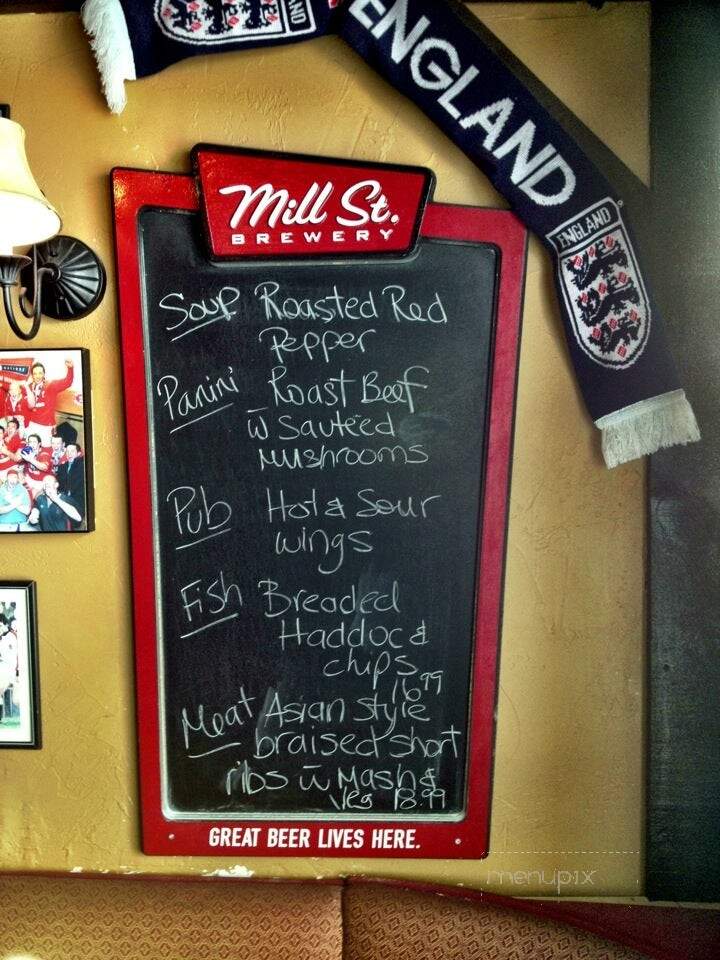 ENGLAND
ENGLAND
Mill St.
BREWERY
Soup Roasted Red
Pepper
Panini Roast Beef
w̄ Sautéed
Mushrooms
Pub Hot & Sour
wings
Fish Breaded
Haddoc &
chips
16.99
Meat Asian Style
braised short
ribs w̄ Mash &
Veg 18.99
GREAT BEER LIVES HERE.
menupix